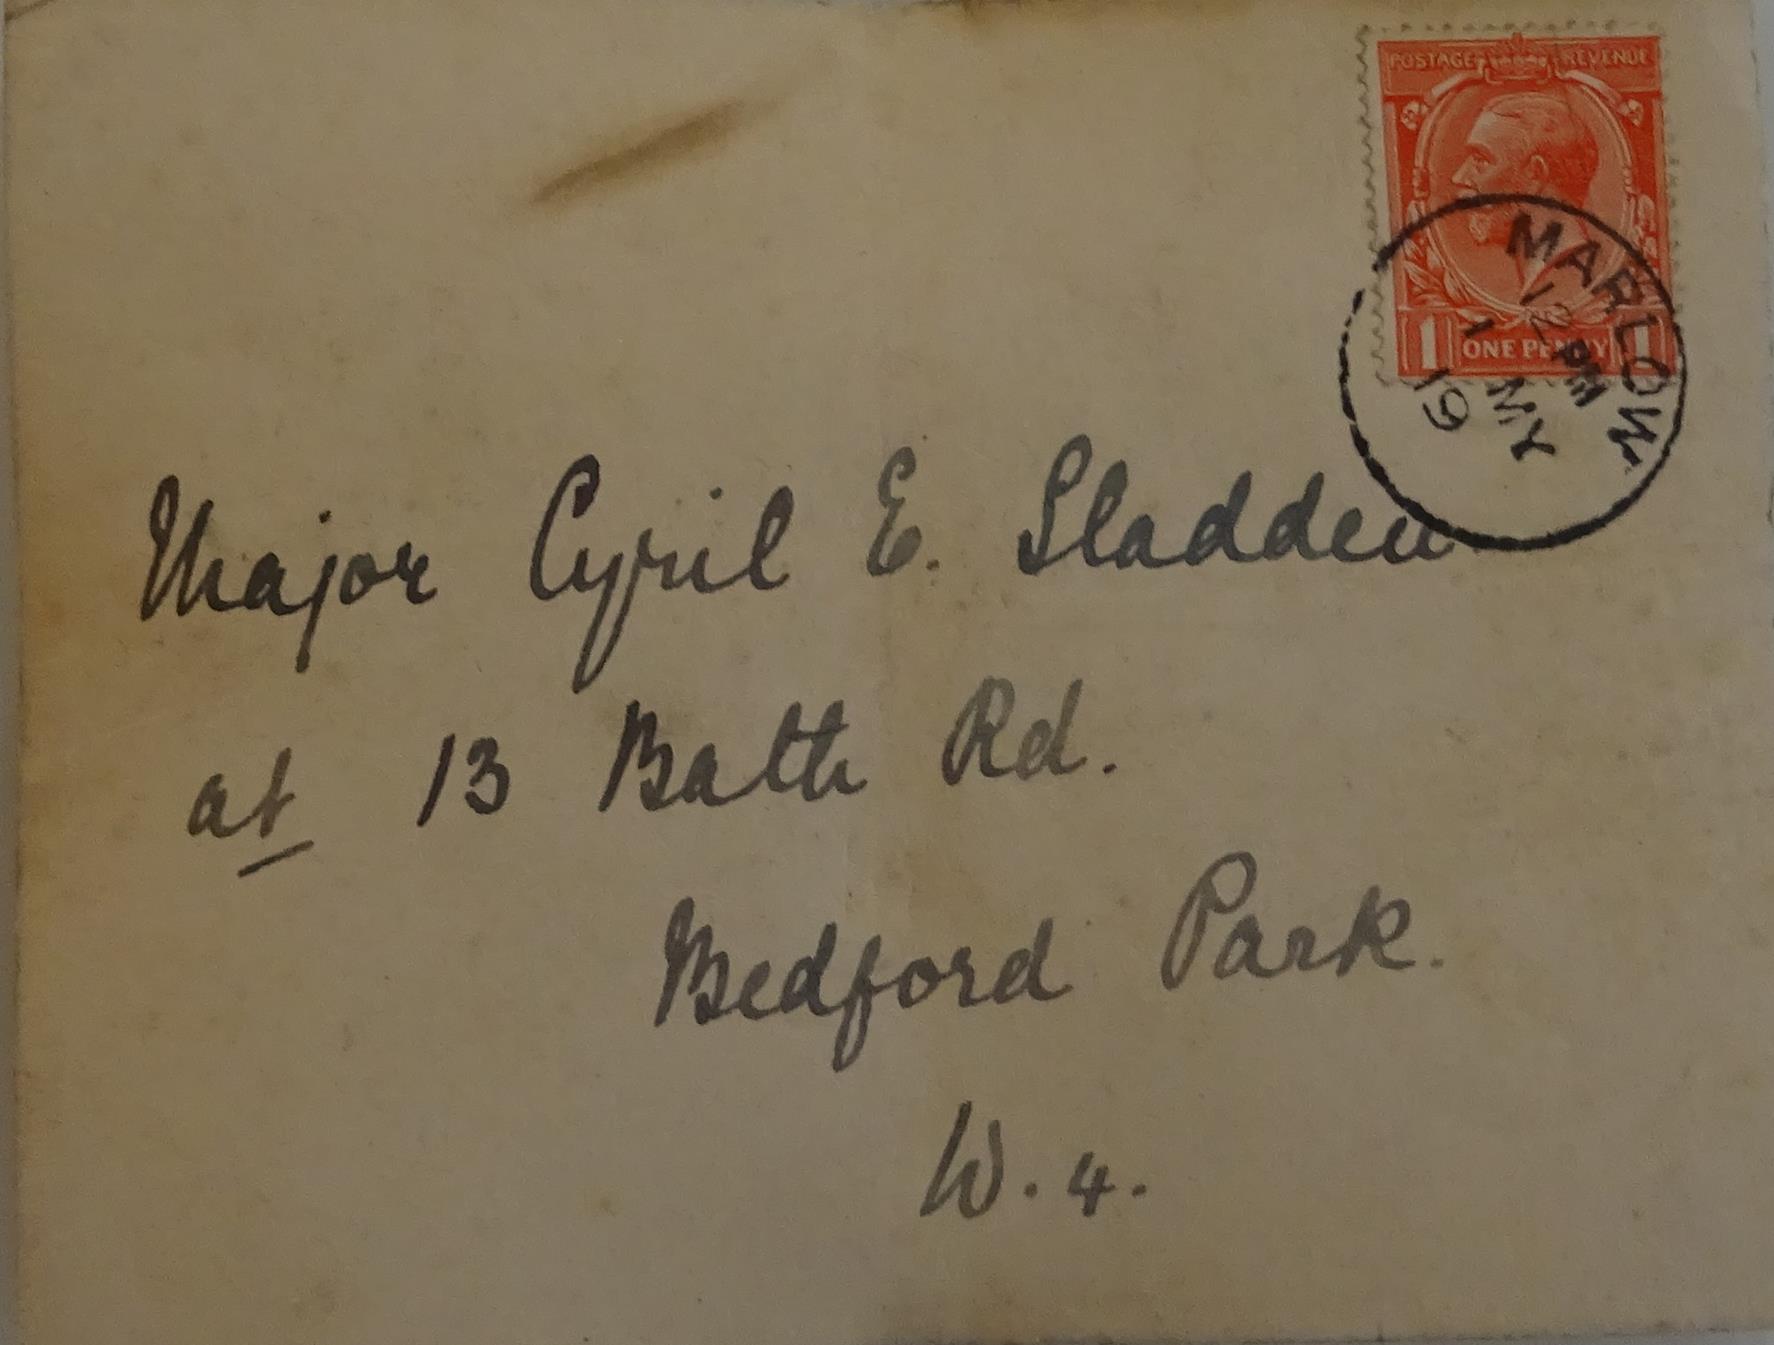 POSTAGE REVENUE
1 ONE PENNY 1
MARLOW
12 PM
1 MY
19
Major Cyril E. Sladden
at 13 Bath Rd.
Bedford Park.
W. 4.